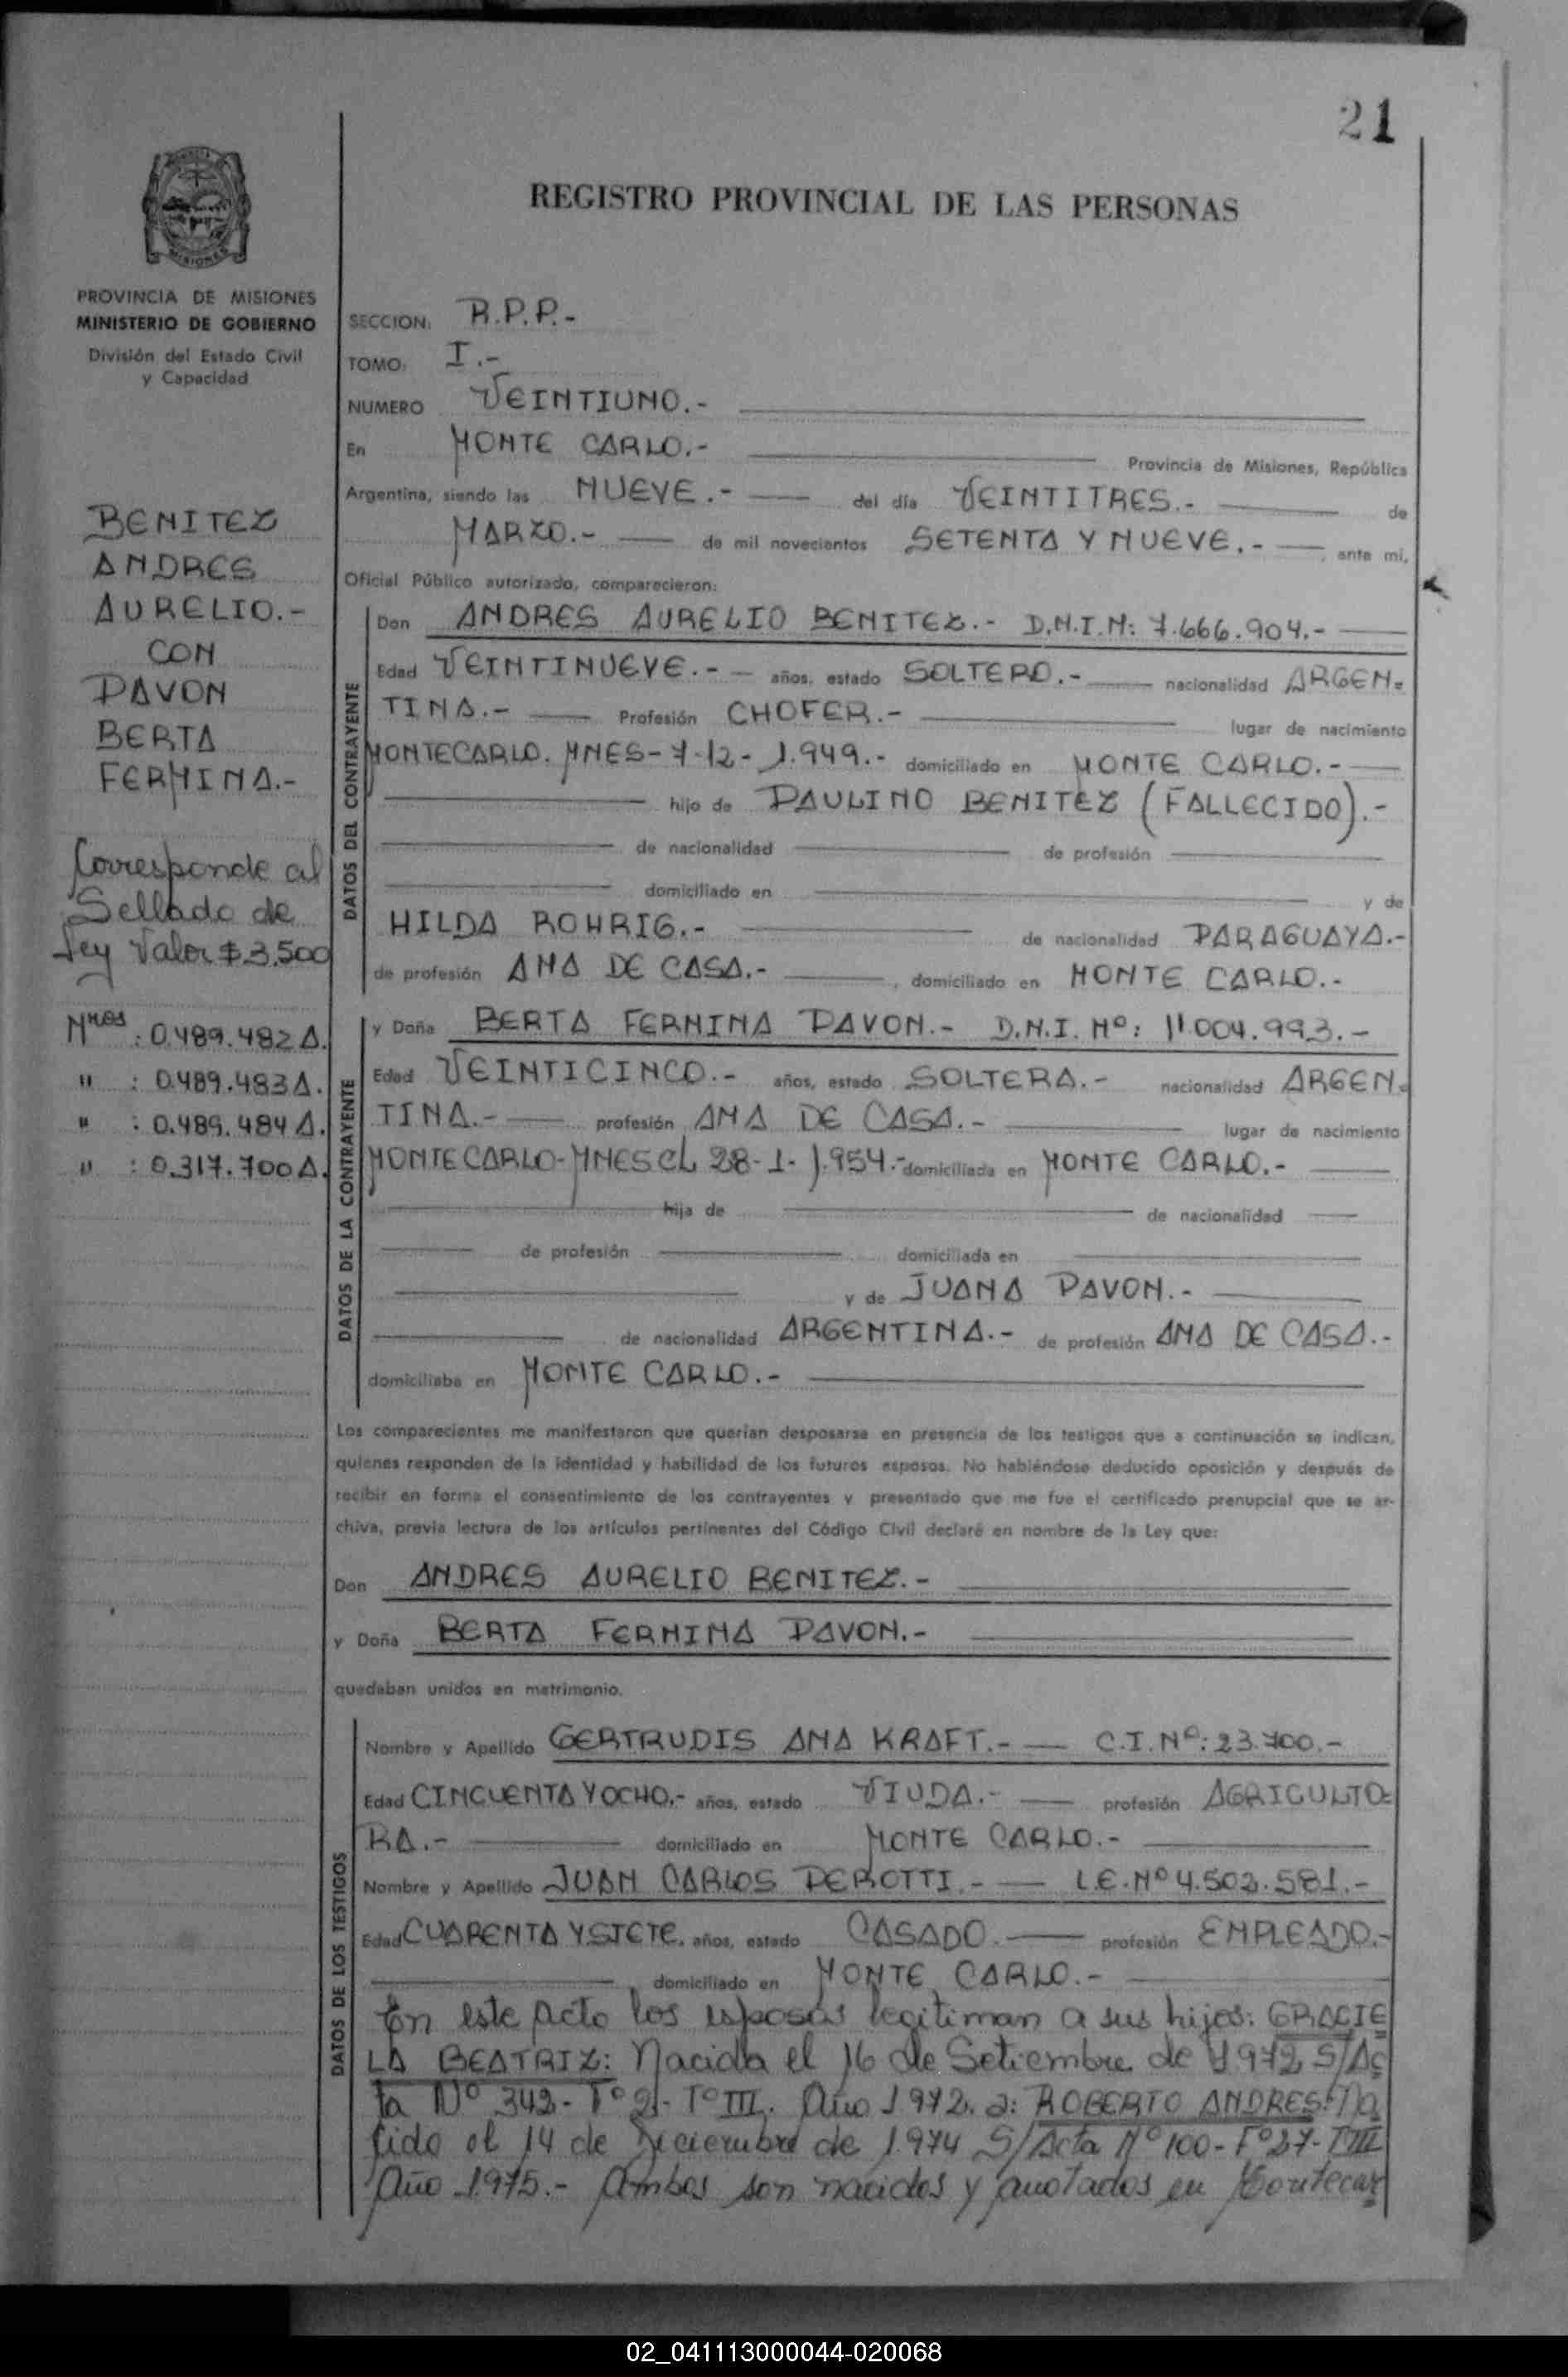 21
REGISTRO PROVINCIAL DE LAS PERSONAS
MISIONES
PROVINCIA DE MISIONES
MINISTERIO DE GOBIERNO
División del Estado Civil
y Capacidad
BENITEZ
ANDRES
AURELIO.-
CON
PAVON
BERTA
FERMINA.-
Corresponde al
Sellado de
Ley Valor $ 3.500
Nros : 0.489.482 A.
" : 0.489.483 A.
" : 0.489.484 A.
" : 0.317.700 A.
SECCION: R.P.P.-
TOMO: I.-
NUMERO VEINTIUNO.-
En MONTE CARLO.- Provincia de Misiones, República
Argentina, siendo las NUEVE.- del día VEINTITRES.- de
MARZO.- de mil novecientos SETENTA Y NUEVE.-, ante mí,
Oficial Público autorizado, comparecieron:
DATOS DEL CONTRAYENTE
Don ANDRES AURELIO BENITEZ.- D.N.I.N: 7.666.904.-
Edad VEINTINUEVE.- años, estado SOLTERO.- nacionalidad ARGEN=
TINA.- Profesión CHOFER.- lugar de nacimiento
MONTECARLO. MNES- 7-12- 1.949.- domiciliado en MONTE CARLO.-
hijo de PAULINO BENITEZ (FALLECIDO).-
de nacionalidad de profesión
domiciliado en y de
HILDA ROHRIG.- de nacionalidad PARAGUAYA.-
de profesión AMA DE CASA.-, domiciliado en MONTE CARLO.-
DATOS DE LA CONTRAYENTE
y Doña BERTA FERMINA PAVON.- D.N.I. Nº: 11.004.993.-
Edad VEINTICINCO.- años, estado SOLTERA.- nacionalidad ARGEN=
TINA.- profesión AMA DE CASA.- lugar de nacimiento
MONTECARLO-MNES EL 28-1-1.954.- domiciliada en MONTE CARLO.-
hija de de nacionalidad
de profesión domiciliada en
y de JUANA PAVON.-
de nacionalidad ARGENTINA.- de profesión AMA DE CASA.-
domiciliaba en MONTE CARLO.-
Los comparecientes me manifestaron que querían desposarse en presencia de los testigos que a continuación se indican,
quienes responden de la identidad y habilidad de los futuros esposos. No habiéndose deducido oposición y después de
recibir en forma el consentimiento de los contrayentes y presentado que me fue el certificado prenupcial que se ar-
chiva, previa lectura de los artículos pertinentes del Código Civil declaré en nombre de la Ley que:
Don ANDRES AURELIO BENITEZ.-
y Doña BERTA FERMINA PAVON.-
quedaban unidos en matrimonio.
DATOS DE LOS TESTIGOS
Nombre y Apellido GERTRUDIS ANA KRAFT.- C.I.Nº: 23.700.-
Edad CINCUENTA Y OCHO.- años, estado VIUDA.- profesión AGRICULTO=
RA.- domiciliado en MONTE CARLO.-
Nombre y Apellido JUAN CARLOS PEROTTI.- L.E.Nº 4.502.581.-
Edad CUARENTA Y SIETE. años, estado CASADO.- profesión EMPLEADO.-
domiciliado en MONTE CARLO.-
En este Acto los esposos legitiman a sus hijos: GRACIE
LA BEATRIZ: Nacida el 16 de Setiembre de 1972 S/Ac
ta Nº 342- Tº III. Año 1972. a: ROBERTO ANDRES: Na
cido el 14 de Diciembre de 1974 S/Acta Nº 100- Fº 27- T III
Año 1975.- Ambos son nacidos y anotados en Montecar
02_041113000044-020068